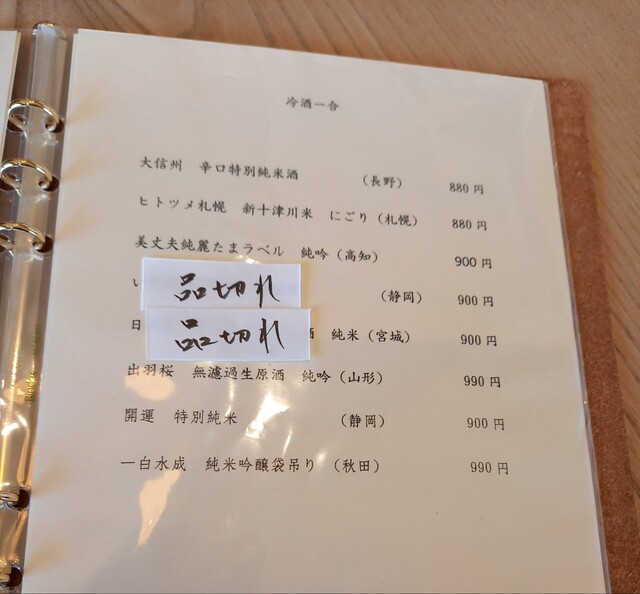 冷酒一合
大信州 辛口特別純米酒 (長野) 880円
ヒトツメ札幌 新十津川米 にごり(札幌) 880円
美丈夫純麗たまラベル 純吟(高知) 900円
品切れ (静岡) 900円
日 品切れ 酒 純米(宮城) 900円
出羽桜 無濾過生原酒 純吟(山形) 990円
開運 特別純米 (静岡) 900円
一白水成 純米吟醸袋吊り (秋田) 990円